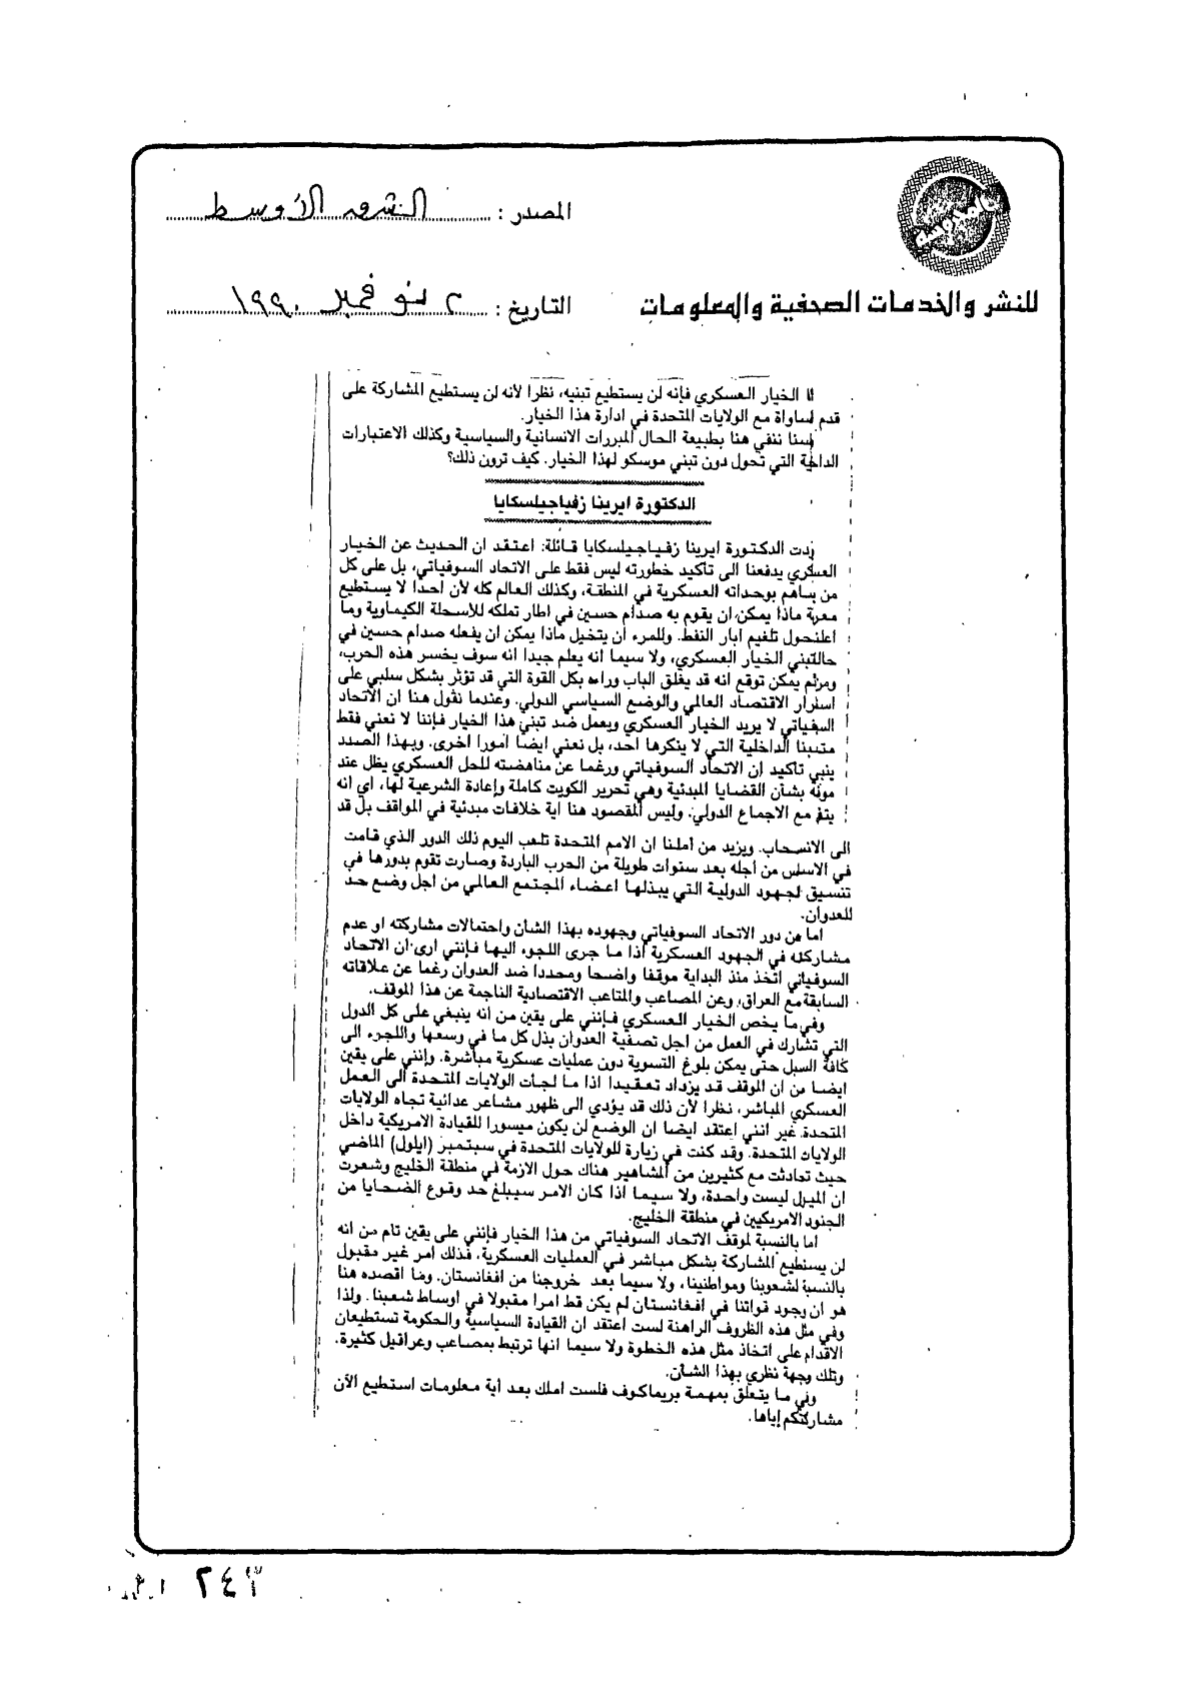 المصدر : الشرق الأوسط
للنشر والخدمات الصحفية والمعلومات
التاريخ : ٢ نوفمبر ١٩٩٠
ا الخيار العسكري فإنه لن يستطيع تبنيه، نظرا لأنه لن يستطيع المشاركة على
قدم لساواة مع الولايات المتحدة في ادارة هذا الخيار.
لسنا ننفي هنا بطبيعة الحال المبررات الانسانية والسياسية وكذلك الاعتبارات
الداخية التي تحول دون تبني موسكو لهذا الخيار. كيف ترون ذلك؟
الدكتورة ايرينا زفياجيلسكايا
ردت الدكتورة ايرينا زفياجيلسكايا قائلة: اعتقد ان الحديث عن الخيار
العسكري يدفعنا الى تاكيد خطورته ليس فقط على الاتحاد السوفياتي، بل على كل
من يساهم بوحداته العسكرية في المنطقة، وكذلك العالم كله لأن احدا لا يستطيع
معرة ماذا يمكن ان يقوم به صدام حسين في اطار تملكه للأسحلة الكيماوية وما
اعلنحول تلغيم ابار النفط. وللمرء ان يتخيل ماذا يمكن ان يفعله صدام حسين في
حالتبني الخيار العسكري، ولا سيما انه يعلم جيدا انه سوف يخسر هذه الحرب،
ومرثم يمكن توقع انه قد يغلق الباب وراءه بكل القوة التي قد تؤثر بشكل سلبي على
استرار الاقتصاد العالمي والوضع السياسي الدولي. وعندما نقول هنا ان الاتحاد
السفياتي لا يريد الخيار العسكري ويعمل ضد تبني هذا الخيار فإننا لا نعني فقط
متببنا الداخلية التي لا ينكرها احد، بل نعني ايضا امورا اخرى. وبهذا الصدد
ينبي تاكيد ان الاتحاد السوفياتي ورغما عن مناهضته للحل العسكري يظل عند
موفه بشأن القضايا المبدئية وهي تحرير الكويت كاملة وإعادة الشرعية لها، اي انه
يتفم مع الاجماع الدولي. وليس المقصود هنا اية خلافات مبدئية في المواقف بل قد
الى الانسحاب. ويزيد من املنا ان الامم المتحدة تلعب اليوم ذلك الدور الذي قامت
في الاسلس من أجله بعد سنوات طويلة من الحرب الباردة وصارت تقوم بدورها في
تنسيق لجهود الدولية التي يبذلها اعضاء المجتمع العالمي من اجل وضع حد
للعدوان.
اما من دور الاتحاد السوفياتي وجهوده بهذا الشأن واحتمالات مشاركته او عدم
مشاركته في الجهود العسكرية اذا ما جرى اللجوء اليها فإنني ارى ان الاتحاد
السوفياتي اتخذ منذ البداية موقفا واضحا ومحددا ضد العدوان رغما عن علاقاته
السابقة مع العراق، وعن المصاعب والمتاعب الاقتصادية الناجمة عن هذا الموقف.
وفي ما يخص الخيار العسكري فإنني على يقين من انه ينبغي على كل الدول
التي تشارك في العمل من اجل تصفية العدوان بذل كل ما في وسعها واللجوء الى
كافة السبل حتى يمكن بلوغ التسوية دون عمليات عسكرية مباشرة. وإنني على يقين
ايضا من ان الموقف قد يزداد تعقيدا اذا ما لجأت الولايات المتحدة الى العمل
العسكري المباشر، نظرا لأن ذلك قد يؤدي الى ظهور مشاعر عدائية تجاه الولايات
المتحدة. غير انني اعتقد ايضا ان الوضع لن يكون ميسورا للقيادة الامريكية داخل
الولايات المتحدة. وقد كنت في زيارة للولايات المتحدة في سبتمبر (ايلول) الماضي
حيث تحادثت مع كثيرين من المشاهير هناك حول الازمة في منطقة الخليج وشعرت
ان الميول ليست واحدة، ولا سيما اذا كان الامر سيبلغ حد وقوع الضحايا من
الجنود الامريكيين في منطقة الخليج.
اما بالنسبة لموقف الاتحاد السوفياتي من هذا الخيار فإنني على يقين تام من انه
لن يستطيع المشاركة بشكل مباشر في العمليات العسكرية، فذلك امر غير مقبول
بالنسبة لشعوبنا ومواطنينا، ولا سيما بعد خروجنا من افغانستان. وما اقصده هنا
هو ان وجود قواتنا في افغانستان لم يكن قط امرا مقبولا في اوساط شعبنا. ولذا
وفي مثل هذه الظروف الراهنة لست اعتقد ان القيادة السياسية والحكومة تستطيعان
الاقدام على اتخاذ مثل هذه الخطوة ولا سيما انها ترتبط بمصاعب وعراقيل كثيرة.
وتلك وجهة نظري بهذا الشأن.
وفي ما يتعلق بمهمة بريماكوف فلست املك بعد أية معلومات استطيع الآن
مشاركتكم إياها.